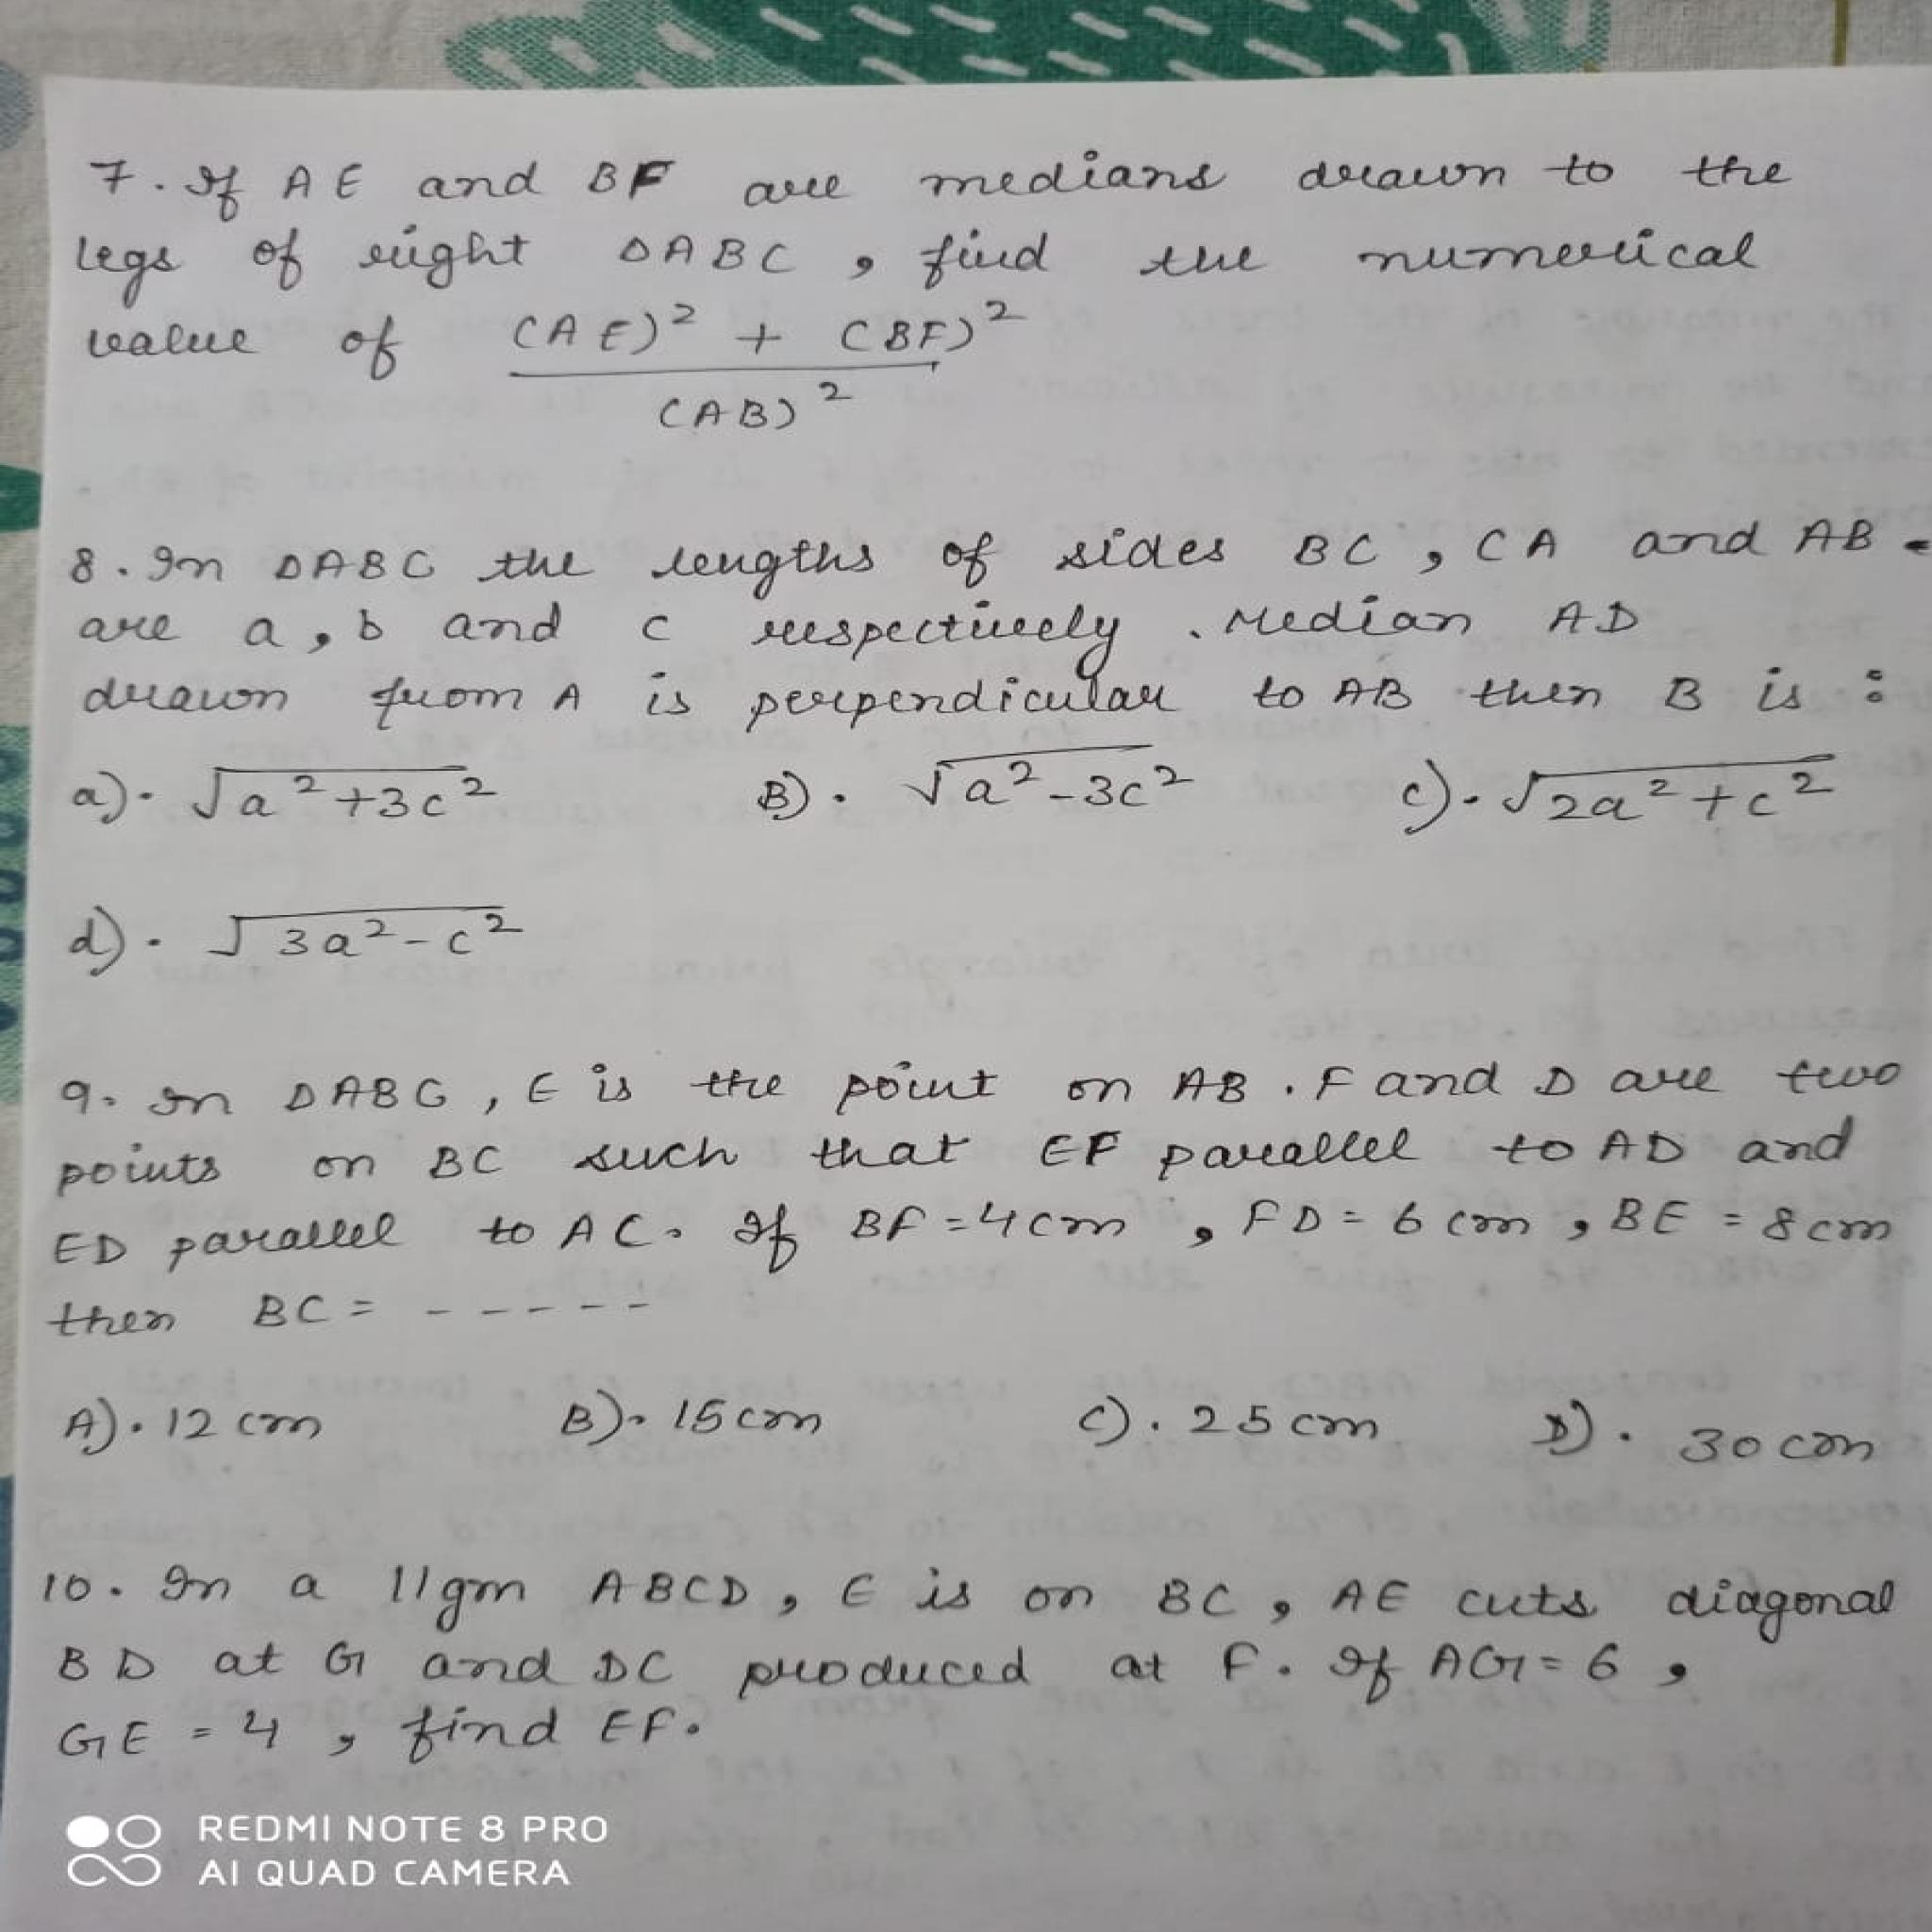 7. If AE and BF are medians drawn to the
legs of right ΔABC, find the numerical
value of (AE)² + (BF)²
(AB)²
8. In ΔABC the lengths of sides BC, CA and AB
are a, b and c respectively. Median AD
drawn from A is perpendicular to AB then B is :
a). √a²+3c² B). √a²-3c² c). √2a²+c²
d). √3a²-c²
9. In ΔABC, E is the point on AB. F and D are two
points on BC such that EF parallel to AD and
ED parallel to AC. If BF=4cm, FD=6cm, BE=8cm
then BC= -----
A). 12cm B). 15cm C). 25cm D). 30cm
10. In a 11gm ABCD, E is on BC, AE cuts diagonal
BD at G and DC produced at F. If AG=6,
GE=4, find EF.
REDMI NOTE 8 PRO
AI QUAD CAMERA